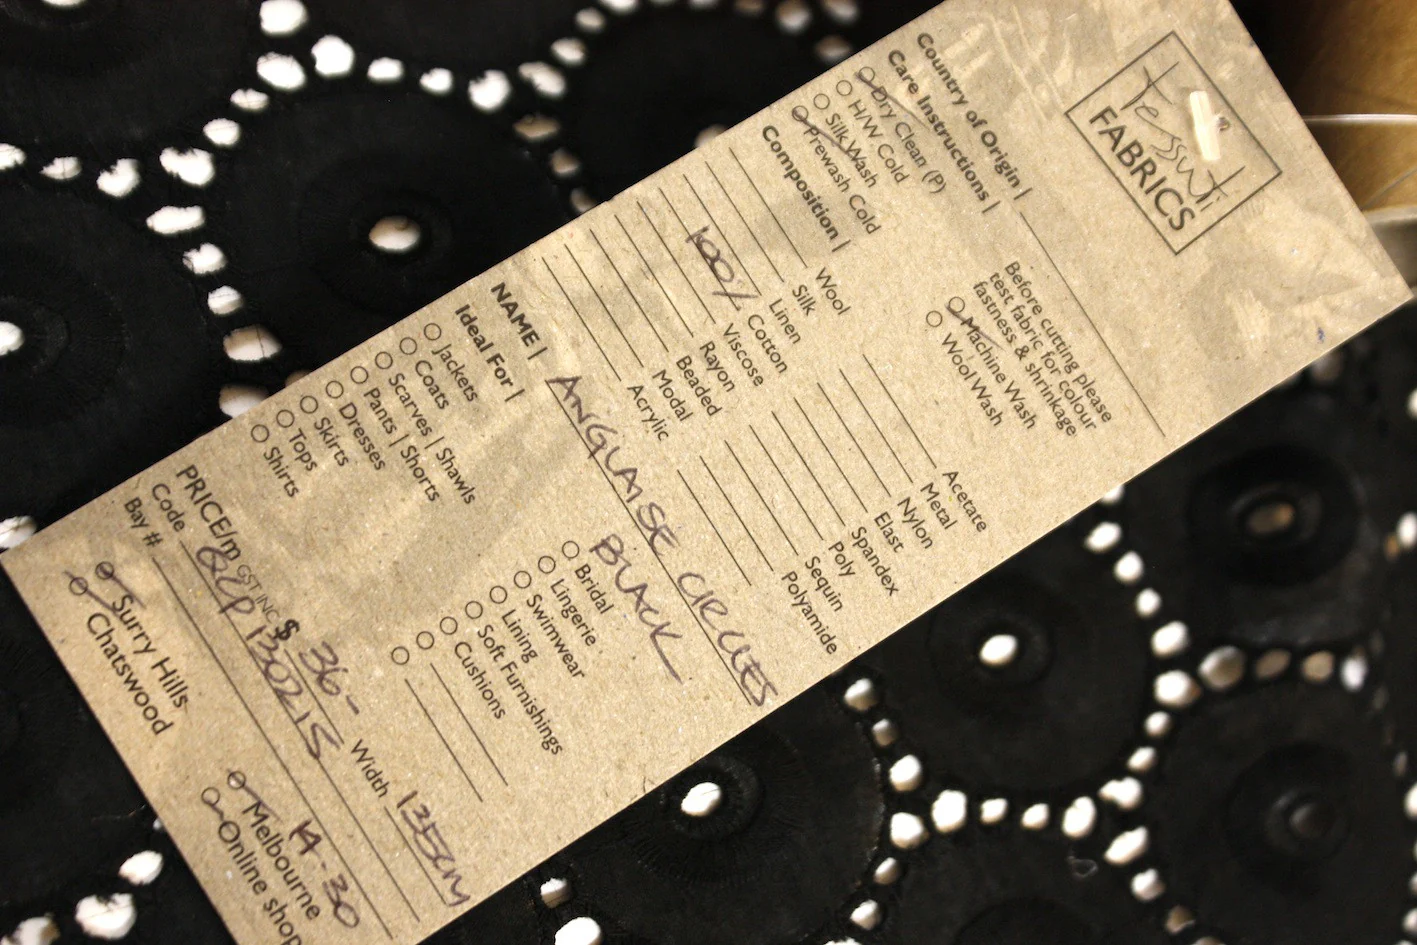 Tessuti
FABRICS
Country of Origin |
Care Instructions |
Dry Clean (P)
H/W Cold
Silk Wash
Prewash Cold
Before cutting please
test fabric for colour
fastness & shrinkage
Machine Wash
Wool Wash
Composition |
Wool
Silk
Linen
100% Cotton
Viscose
Rayon
Beaded
Modal
Acrylic
Acetate
Metal
Nylon
Elast
Spandex
Poly
Sequin
Polyamide
NAME | ANGLAISE CIRCLES
BLACK
Ideal For |
Jackets
Coats
Scarves | Shawls
Pants | Shorts
Dresses
Skirts
Tops
Shirts
Bridal
Lingerie
Swimwear
Lining
Soft Furnishings
Cushions
PRICE/m GST INC $ 36- Width 135cm
Code 130215
Bay # 14.30
Surry Hills
Chatswood
Melbourne
Online shop